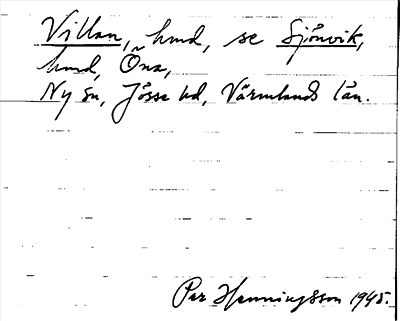 Villan, hmd, se Sjönvik,
hmd, Öna,
Ny sn, Jösse hd, Värmlands län.
Per Henningsson 1945.